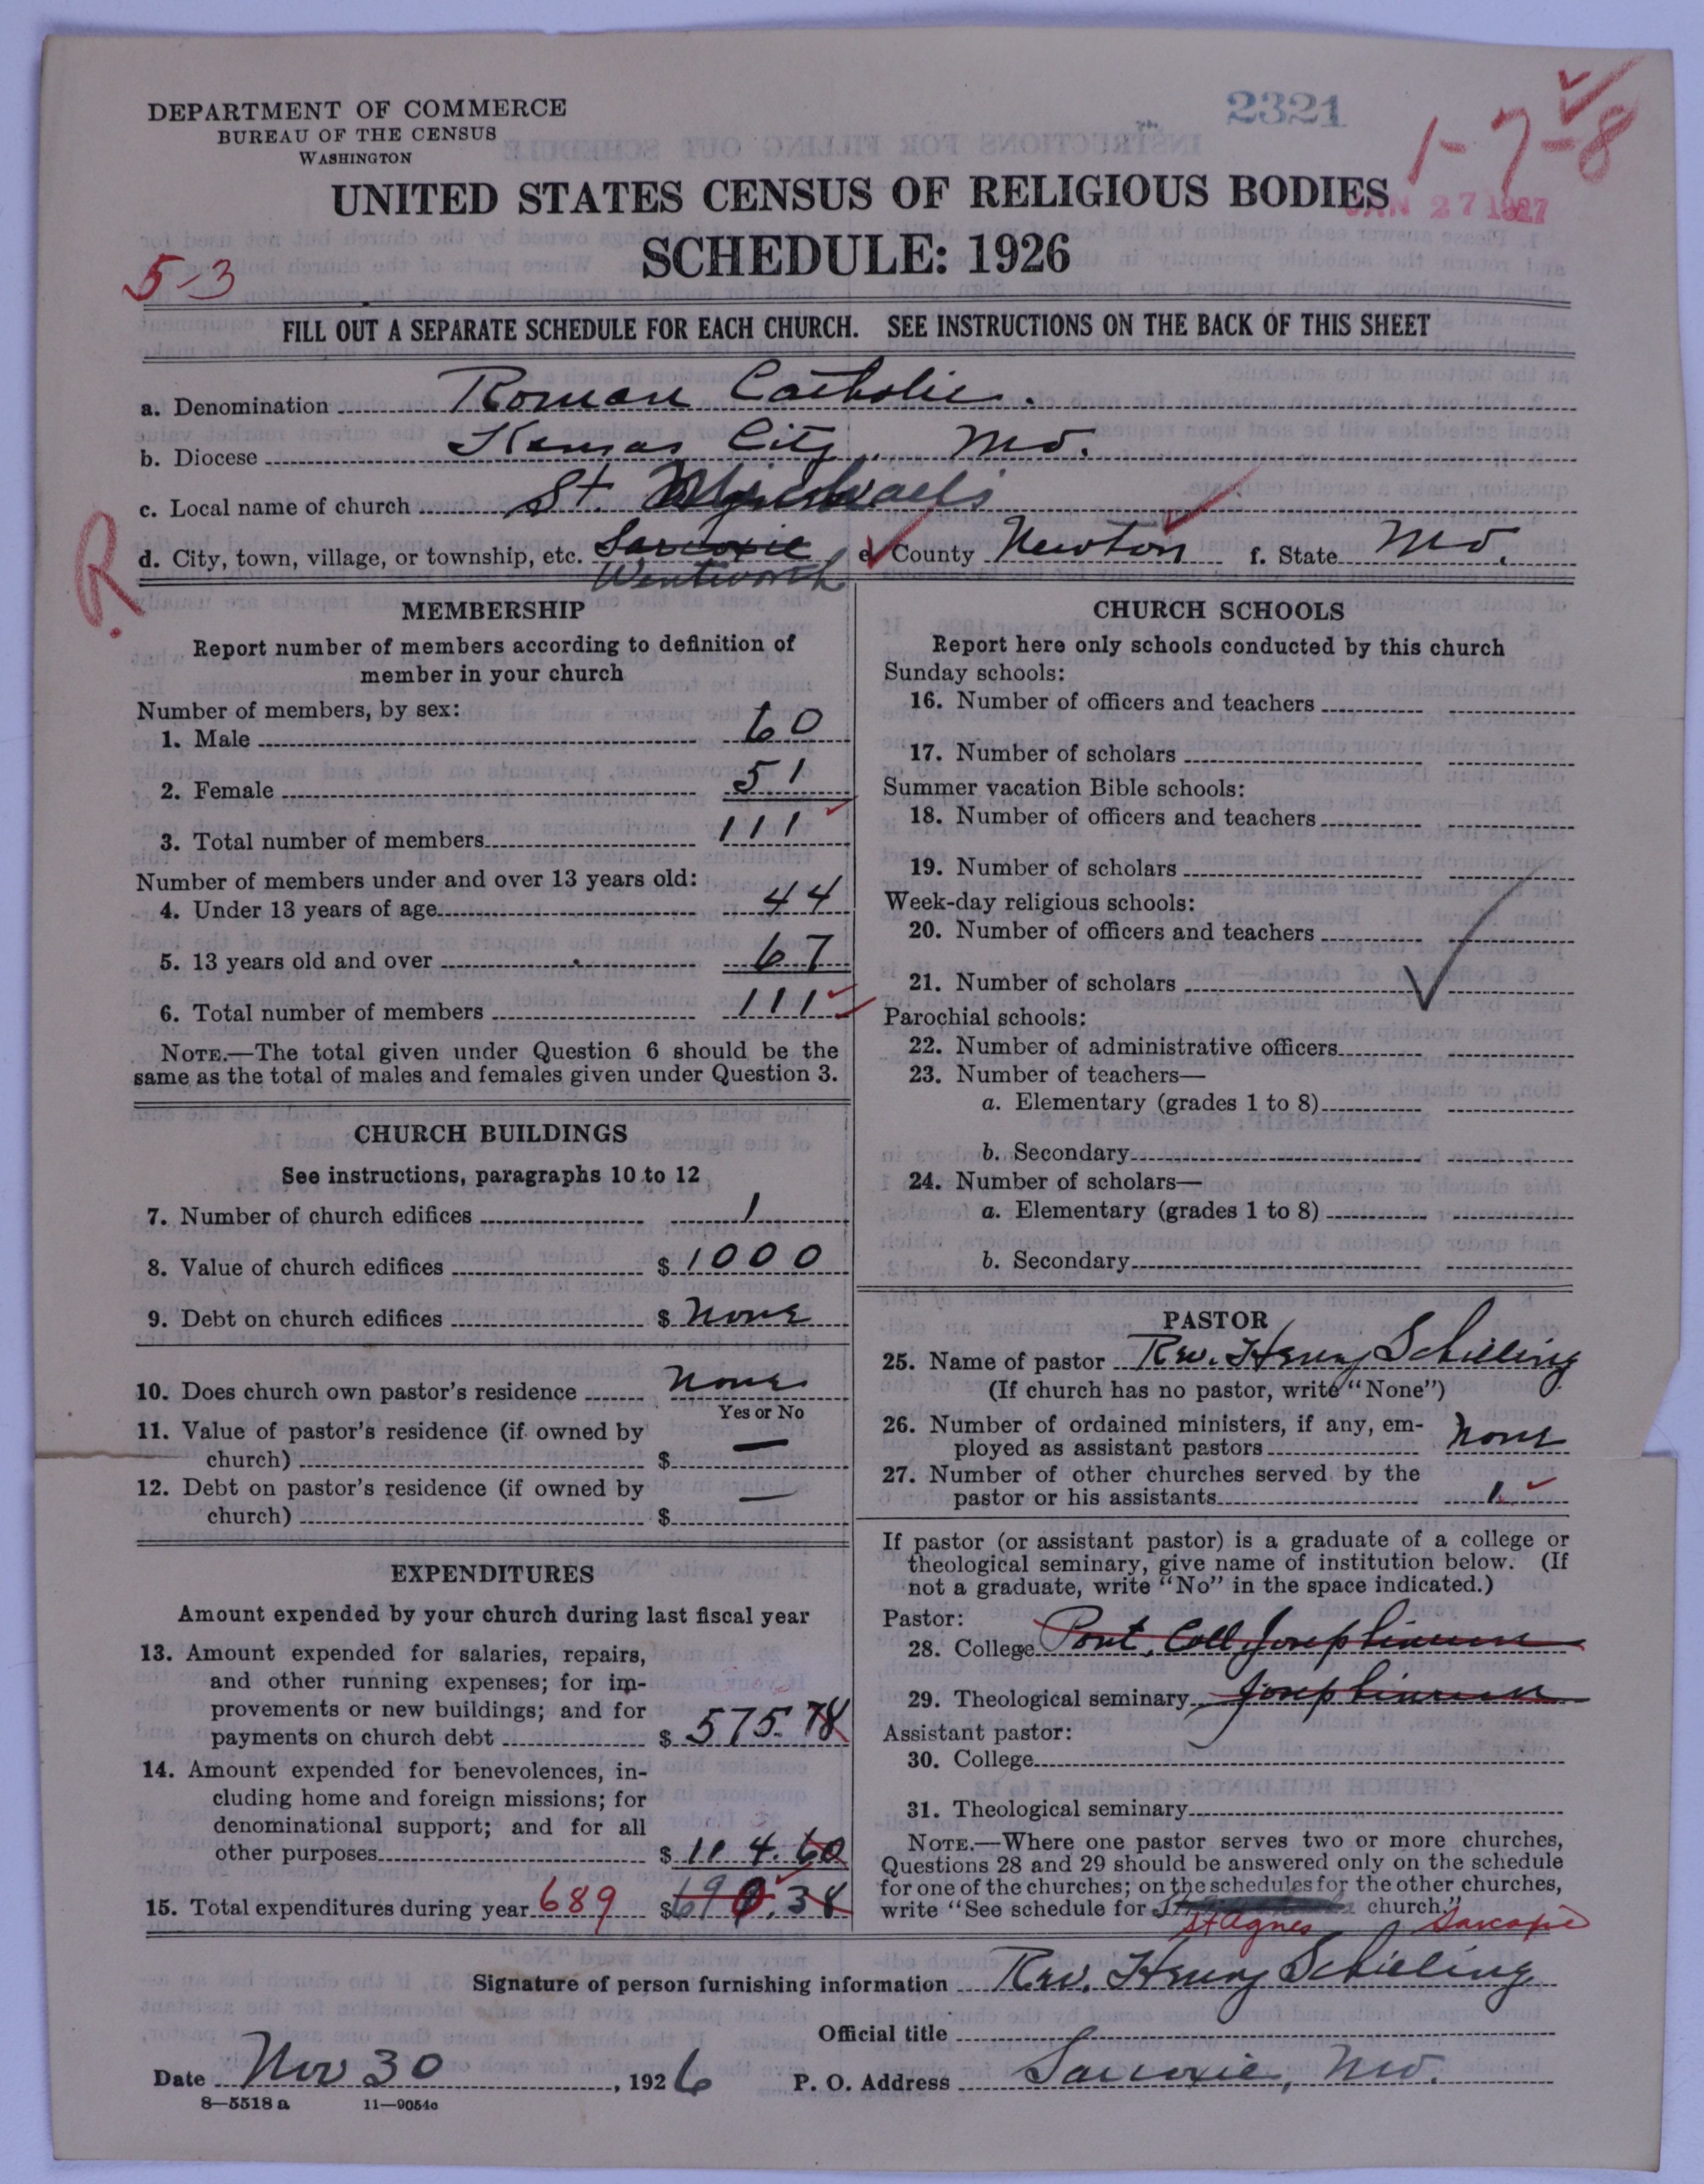 DEPARTMENT OF COMMERCE
BUREAU OF THE CENSUS
WASHINGTON
2321
1-7-8
UNITED STATES CENSUS OF RELIGIOUS BODIES
JAN 27 1927
SCHEDULE: 1926
5-3
FILL OUT A SEPARATE SCHEDULE FOR EACH CHURCH. SEE INSTRUCTIONS ON THE BACK OF THIS SHEET
a. Denomination Roman Catholic.
b. Diocese Kansas City, Mo.
c. Local name of church St. Michaels
d. City, town, village, or township, etc. Sarcoxie e. County Newton f. State Mo.
Wentworth
R.
MEMBERSHIP
Report number of members according to definition of
member in your church
Number of members, by sex:
1. Male 60
2. Female 51
3. Total number of members 111
Number of members under and over 13 years old:
4. Under 13 years of age 44
5. 13 years old and over 67
6. Total number of members 111
NOTE.—The total given under Question 6 should be the
same as the total of males and females given under Question 3.
CHURCH BUILDINGS
See instructions, paragraphs 10 to 12
7. Number of church edifices 1
8. Value of church edifices $ 1000
9. Debt on church edifices $ none
10. Does church own pastor's residence none
Yes or No
11. Value of pastor's residence (if owned by
church) $ —
12. Debt on pastor's residence (if owned by
church) $ —
EXPENDITURES
Amount expended by your church during last fiscal year
13. Amount expended for salaries, repairs,
and other running expenses; for im-
provements or new buildings; and for
payments on church debt $ 575.78
14. Amount expended for benevolences, in-
cluding home and foreign missions; for
denominational support; and for all
other purposes $ 114.60
15. Total expenditures during year 689 $ 690.38
CHURCH SCHOOLS
Report here only schools conducted by this church
Sunday schools:
16. Number of officers and teachers
17. Number of scholars
Summer vacation Bible schools:
18. Number of officers and teachers
19. Number of scholars
Week-day religious schools:
20. Number of officers and teachers
21. Number of scholars
Parochial schools:
22. Number of administrative officers
23. Number of teachers—
a. Elementary (grades 1 to 8)
b. Secondary
24. Number of scholars—
a. Elementary (grades 1 to 8)
b. Secondary
PASTOR
25. Name of pastor Rev. Henry Schilling
(If church has no pastor, write "None")
26. Number of ordained ministers, if any, em-
ployed as assistant pastors none
27. Number of other churches served by the
pastor or his assistants 1
If pastor (or assistant pastor) is a graduate of a college or
theological seminary, give name of institution below. (If
not a graduate, write "No" in the space indicated.)
Pastor:
28. College Pont. Coll. Josephinum
29. Theological seminary Josephinum
Assistant pastor:
30. College
31. Theological seminary
NOTE.—Where one pastor serves two or more churches,
Questions 28 and 29 should be answered only on the schedule
for one of the churches; on the schedules for the other churches,
write "See schedule for church."
St Agnes Sarcoxie
Signature of person furnishing information Rev. Henry Schilling
Official title
Date Nov 30, 1926 P. O. Address Sarcoxie, Mo.
8—5518 a 11—9054c